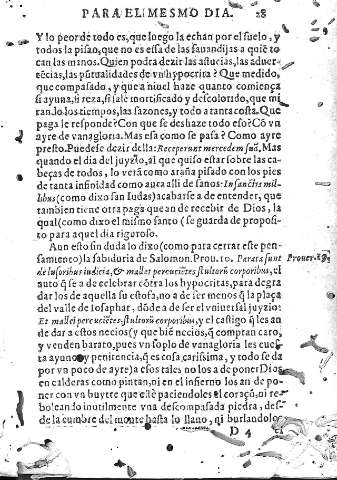 PARA EL MESMO DIA. 28
Y lo peor de todo es, que luego la echan por el suelo, y
todos la pisan, que no es essa de las sauandijas a quiē to
can las manos. Quien podra dezir las astucias, las aduer-
tēcias, las pūtualidades de vn hypocrita? Que medido,
que compasado, y que a niuel haze quanto comiença
si ayuna, si reza, si sale mortificado y descolorido, que mi
ran lo los tiempos, las sazones, y todo a tanta costa. Que
paga le responde? Con que se deshaze todo eso? Cō vn
ayre de vanagloria. Mas esa como se pasa? Como ayre
presto. Puedese dezir della: Receperunt mercedem suā. Mas
quando el dia del juyzio, al que quiso estar sobre las ca-
beças de todos, lo verā como araña pisado con los pies
de tanta infinidad como aura alli de sanos: In sanctis mil-
libus (como dixo san Iudas) acabarse a de entender, que
tambien tiene otra paga que an de recibir de Dios, la
qual (como dixo el mismo santo) se guarda de proposi-
to para aquel dia riguroso.
Aun esto sin duda lo dixo (como para cerrar este pen-
samiento) la sabiduria de Salomon. Prou. 19. Parata sunt
Prouer. 19.
de lusoribus iudicia, & mallei percuciētes stultorū corporibus, el
auto q̄ se a de celebrar cōtra los hypocritas, para degra
dar los de aquella su estofa, no a de ser menos q̄ la plaça
del valle de Iosaphat, dōde a de ser el vniuersal juyzio:
Et mallei percuciētes stultorū corporibus, y el castigo q̄ les an
de dar a estos necios (y que biē necios, q̄ compran caro,
y venden barato, pues vn soplo de vanagloria les cues-
ta ayuno y penitencia, q̄ es cosa carissima, y todo se da
por vn poco de ayre) a esos tales no los a de poner Dios
en calderas como pintan, ni en el infierno los an de po-
ner con vn buytre que estè paciendoles el coraçō, ni re
bolcando inutilmente vna descompasada piedra, des-
de la cumbre del monte hasta lo llano, ni burlandolos
D 4